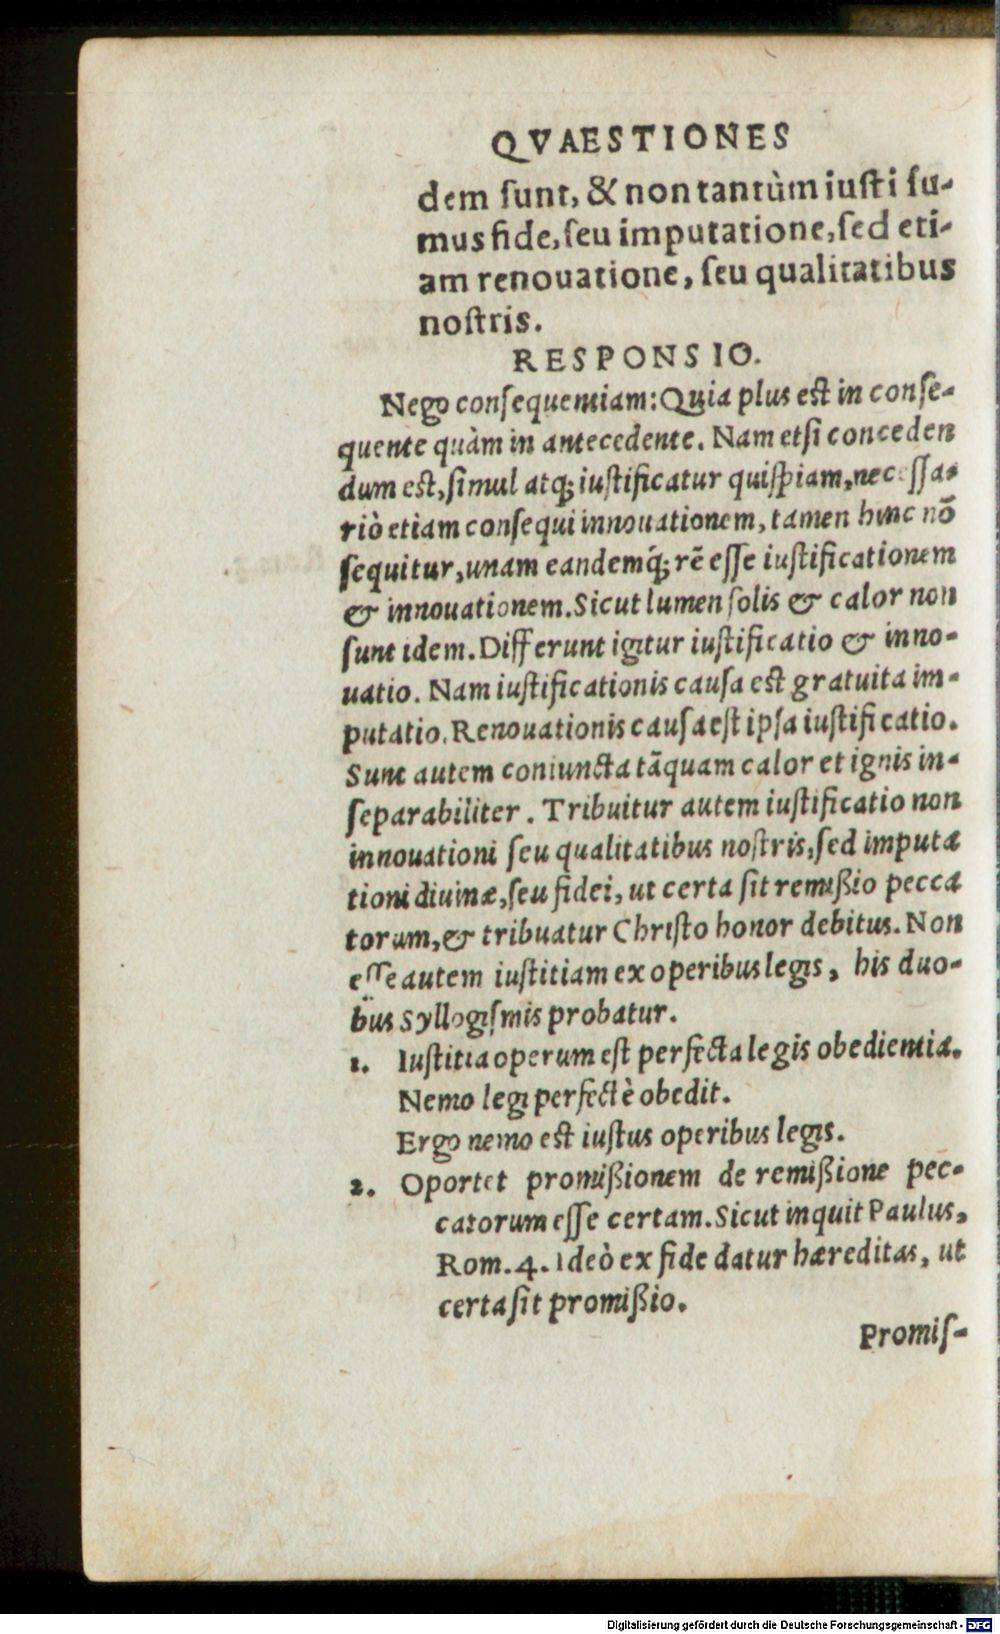 QVAESTIONES
dem ſunt, & non tantùm iuſti ſu-
mus fide, ſeu imputatione, ſed eti-
am renouatione, ſeu qualitatibus
noſtris.
RESPONSIO.
Nego conſequentiam: Quia plus eſt in conſe-
quente quàm in antecedente. Nam etſi conceden
dum eſt, ſimul atq; iuſtificatur quiſpiam, neceſſa-
riò etiam conſequi innouationem, tamen hinc nō
ſequitur, unam eandemq́; rē eſſe iuſtificationem
& innouationem. Sicut lumen ſolis & calor non
ſunt idem. Differunt igitur iuſtificatio & inno-
uatio. Nam iuſtificationis cauſa eſt gratuita im-
putatio. Renouationis cauſa eſt ipſa iuſtificatio.
Sunt autem coniuncta tāquam calor et ignis in-
ſeparabiliter. Tribuitur autem iuſtificatio non
innouationi ſeu qualitatibus noſtris, ſed imputa
tioni diuinæ, ſeu fidei, ut certa ſit remißio pecca
torum, & tribuatur Chriſto honor debitus. Non
eſſe autem iuſtitiam ex operibus legis, his duo-
bus Syllogiſmis probatur.
1. Iuſtitia operum eſt perfecta legis obedientia.
Nemo legi perfectè obedit.
Ergo nemo eſt iuſtus operibus legis.
2. Oportet promißionem de remißione pec-
catorum eſſe certam. Sicut inquit Paulus,
Rom. 4. Ideò ex fide datur hæreditas, ut
certa ſit promißio.
Promiſ-
Digitalisierung gefördert durch die Deutsche Forschungsgemeinschaft - DFG